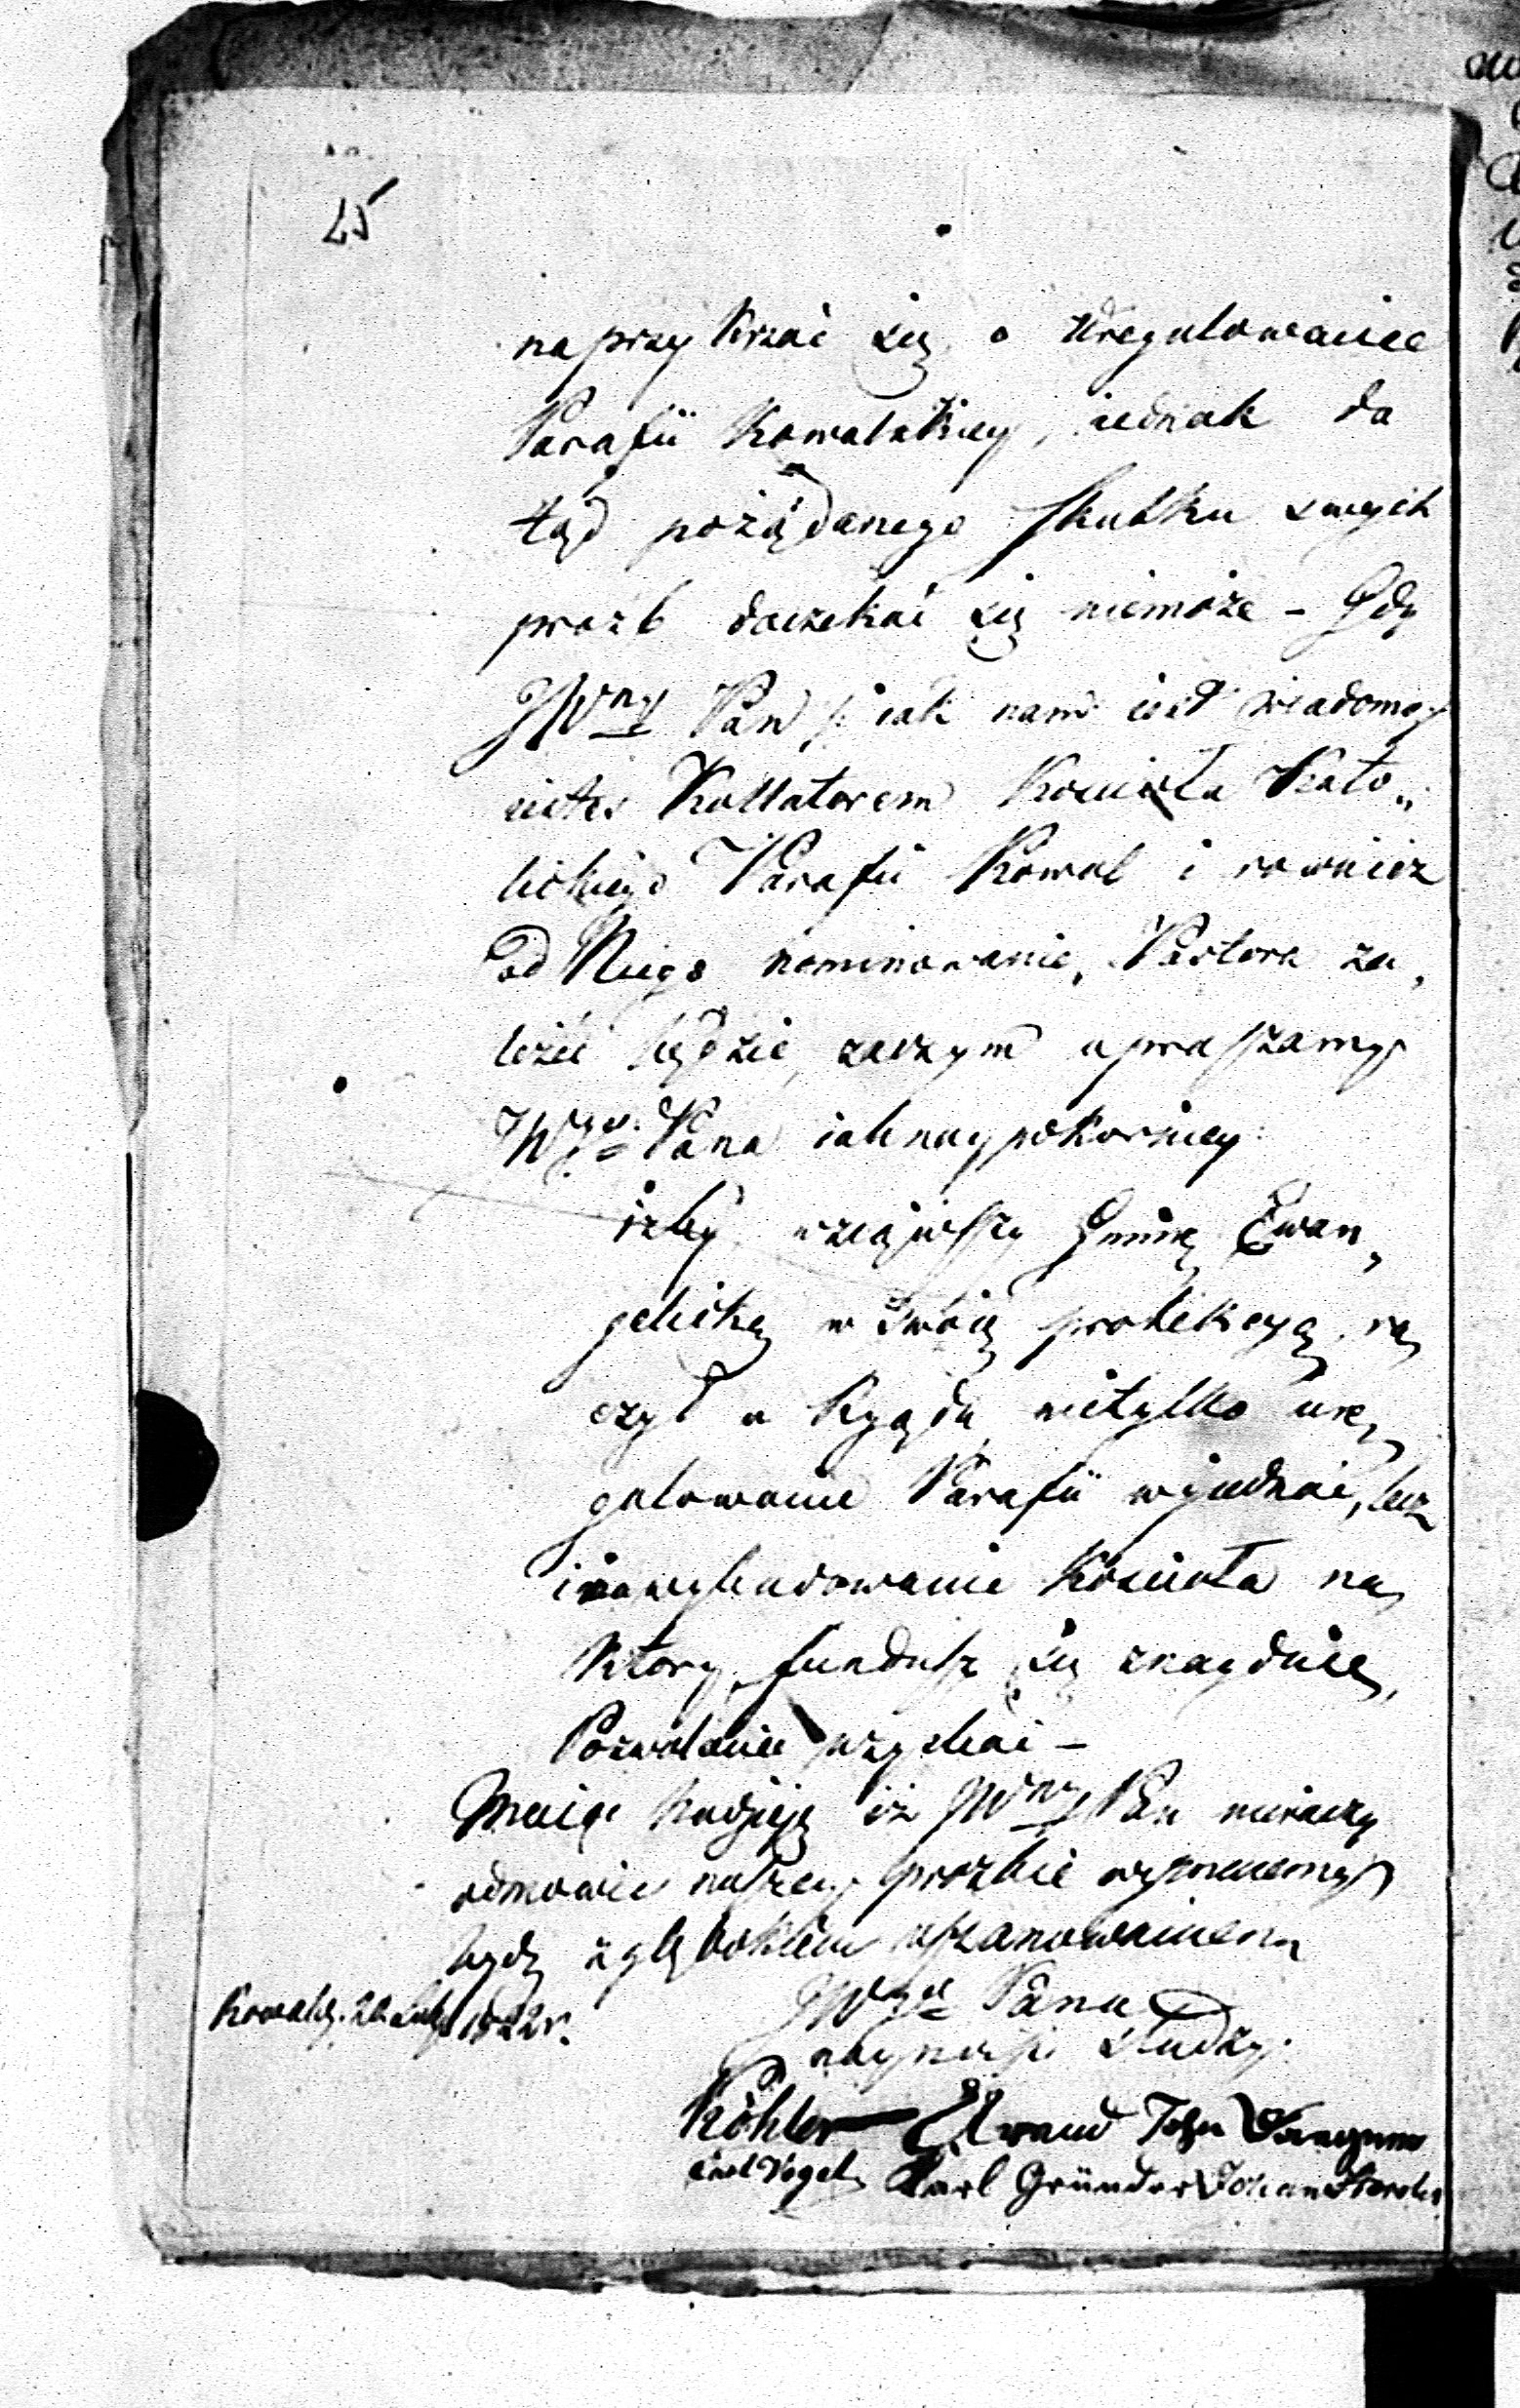 25
naprzykrzać się o uregulowanie
Parafii Kowalskiey, iednak do
tąd pożądanego skutku swych
prozb doczekać się niemoże - Gdy
JWny Pan /: iak nam iest wiadomo
iesteś Kollatorem Kościoła Kato„
lickiego Parafii Kowal i rownież
od Niego nominowanie Pastora za„
leżeć będzie, zaczym upraszamy
JWgo Pana iak naypokorniey
iżby wziąwszy Gminę Ewan„
gelicką w swoię protekcyą ra„
czył u Rządu nietylko ure„
gulowanie Parafii wyiednać, lecz
i na wybudowanie Kościoła na
ktory fundusz się znaydzie,
Pozwolenie uzyskać -
Maiąc nadzieję iż JWny Pan nieraczy
odmowić naszey prozbie
z głębokiem uszanowaniem
JWgo Pana
Kowal d. 20 1822 r.
naynizsi słudzy
Köhler John
Vogel Karl Gründer Johan